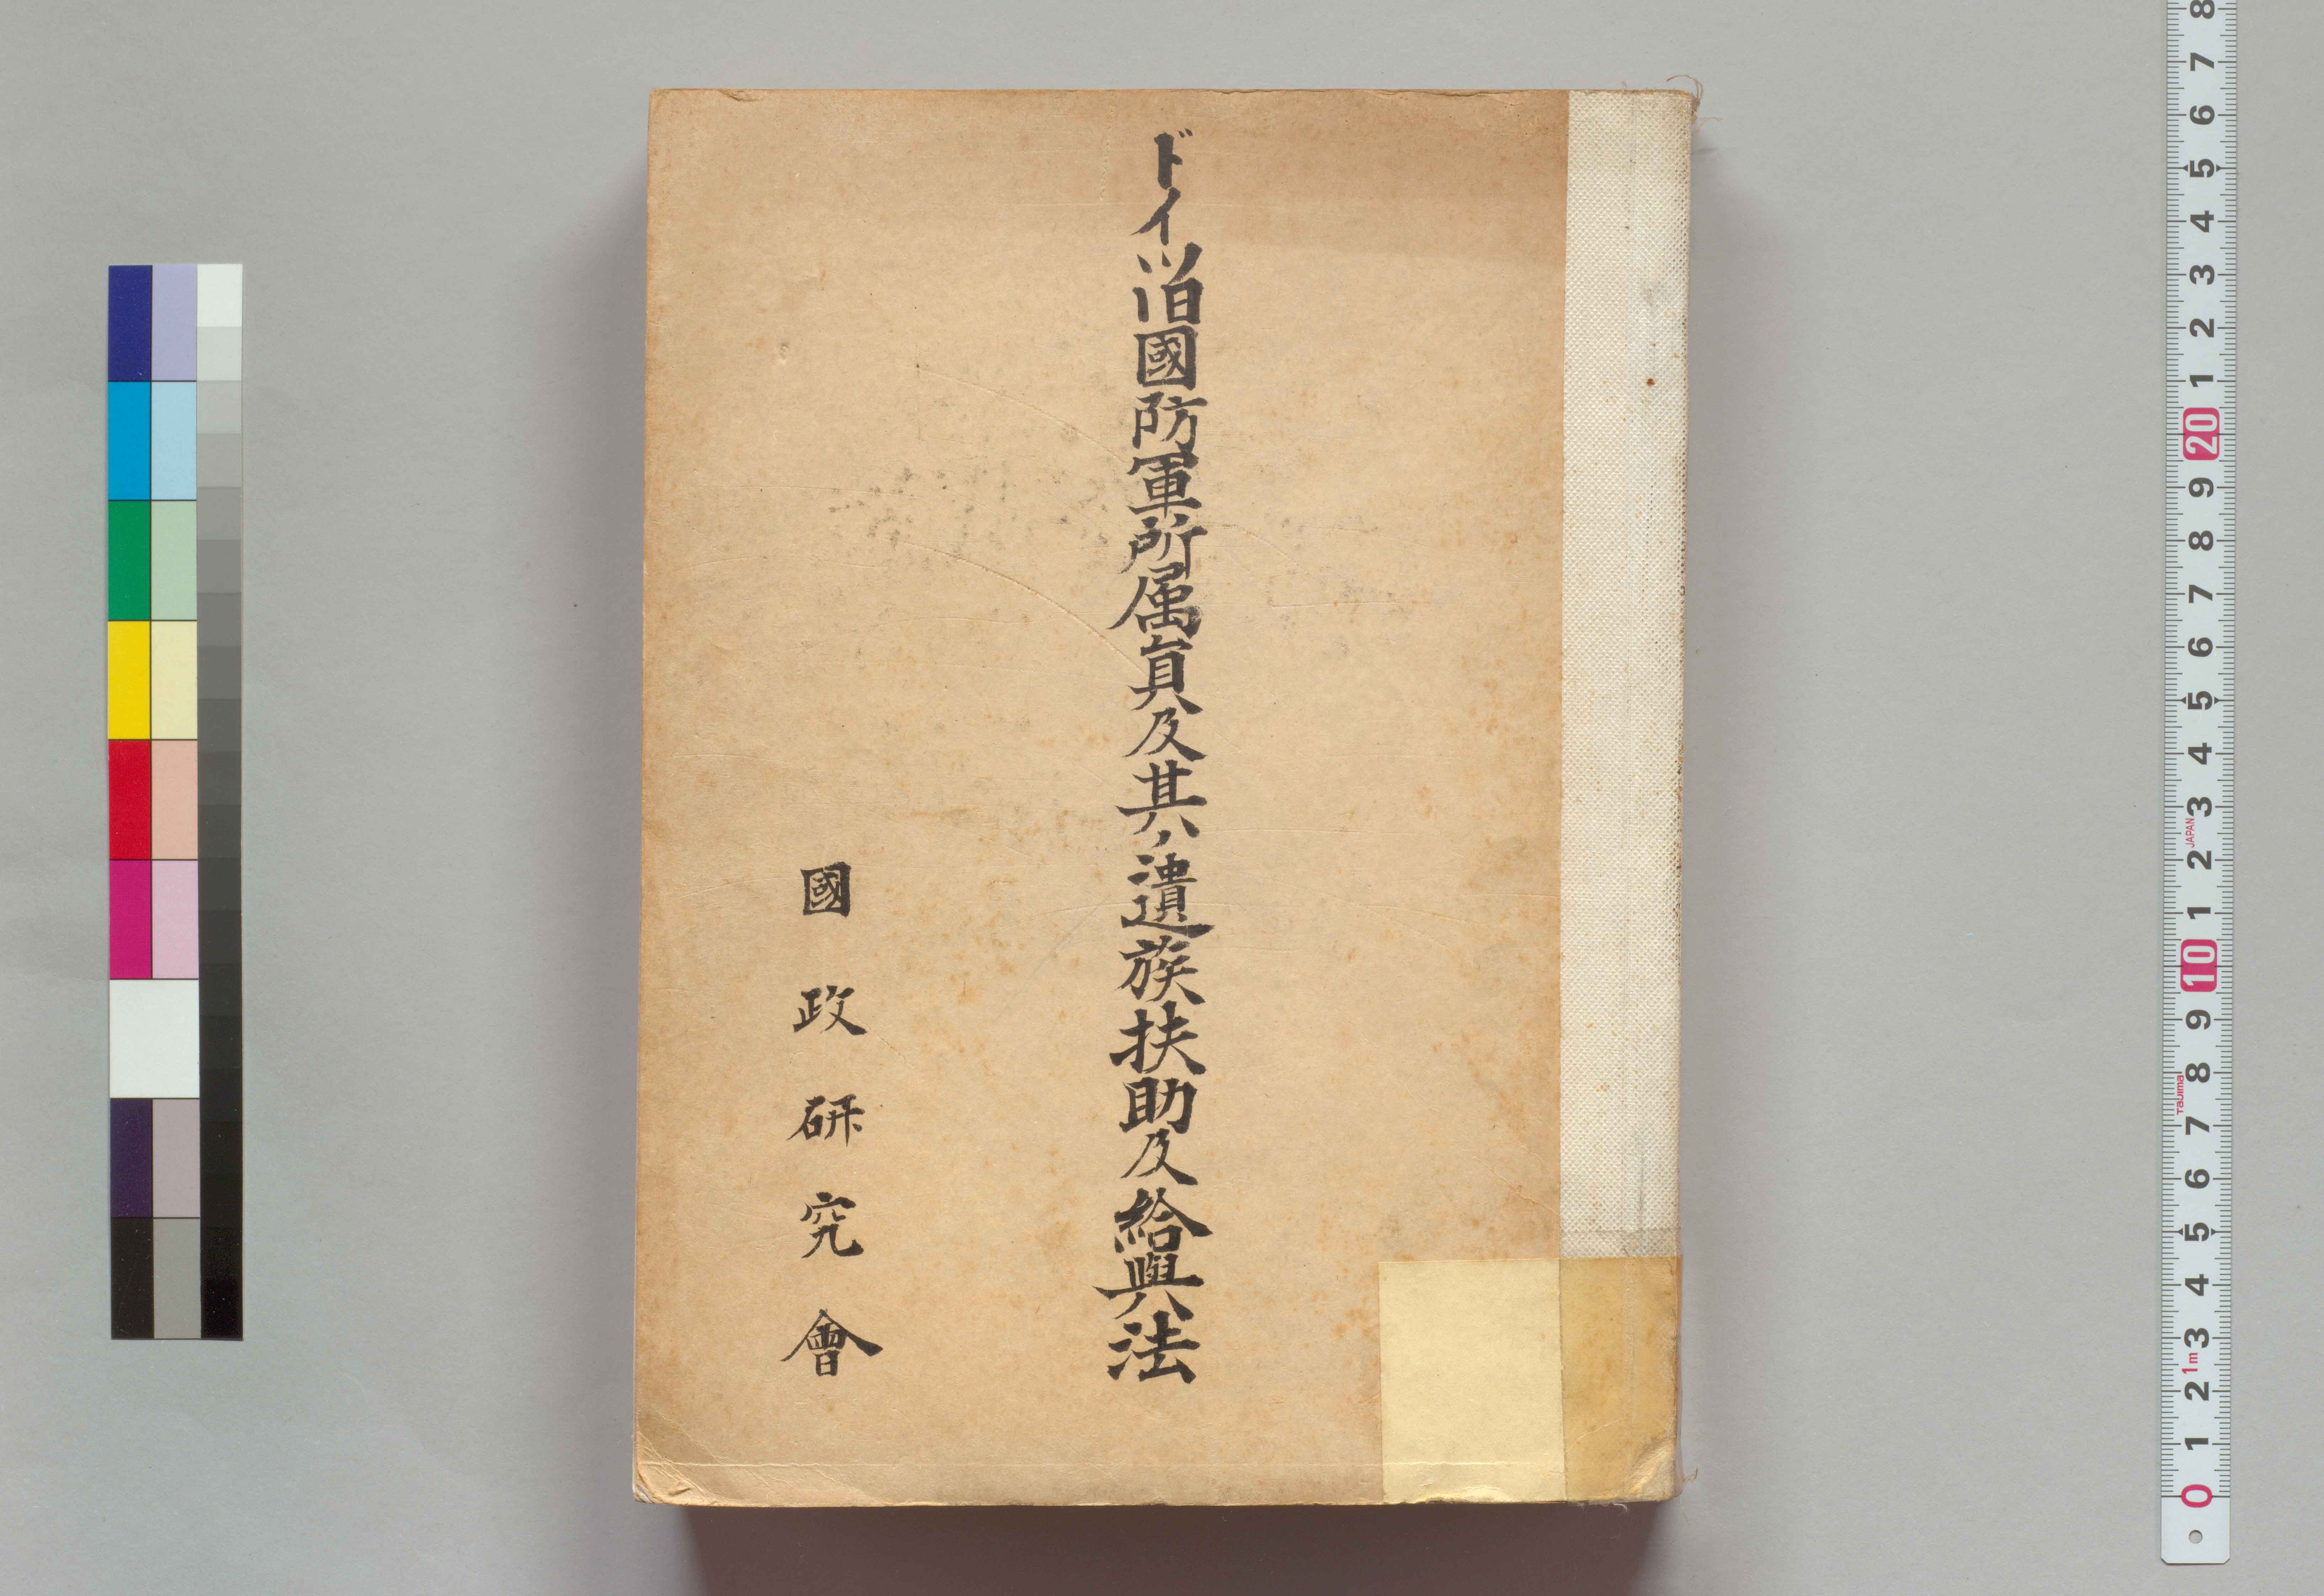 ドイツ旧國防軍所属員及其ノ遺族扶助及給與法
國政研究會
8 7 6 5 4 3 2 1 20 9 8 7 6 5 4 3 2 1 10 9 8 7 6 5 4 3 2 1 0
JAPAN
Tajima
1m